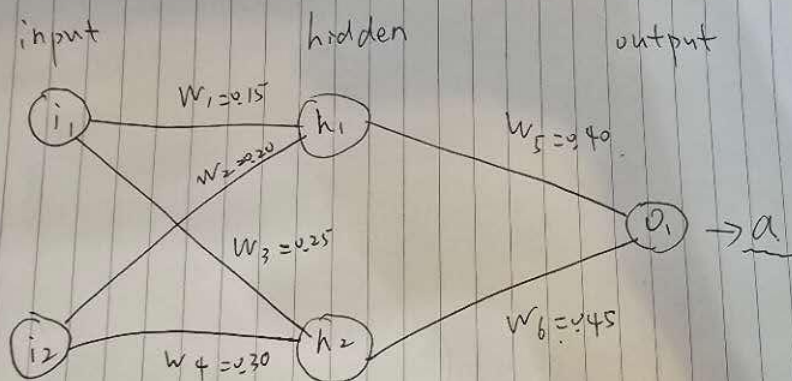 input hidden output
i₁ W₁=0.15 h₁
W₂=0.20 W₅=0.40
W₃=0.25 O₁ → a
i₂ W₄=0.30 h₂ W₆=0.45